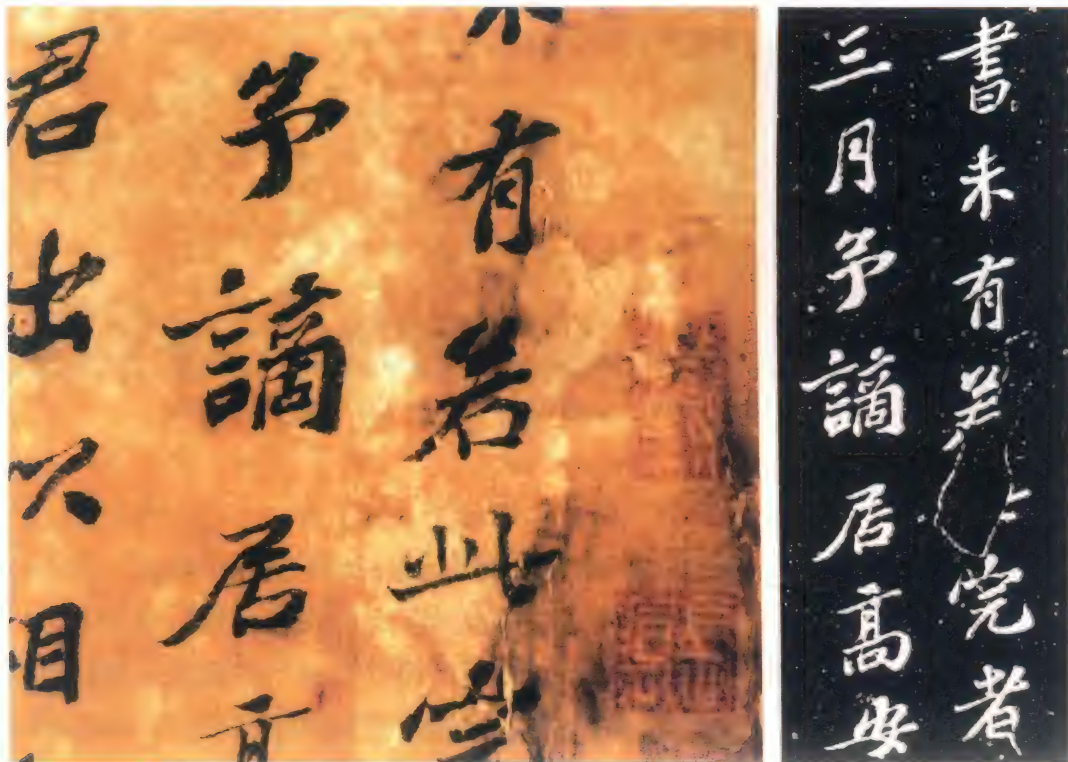 未有若此完
予謫居高
君出以相
書未有若此完者
三月予謫居高安